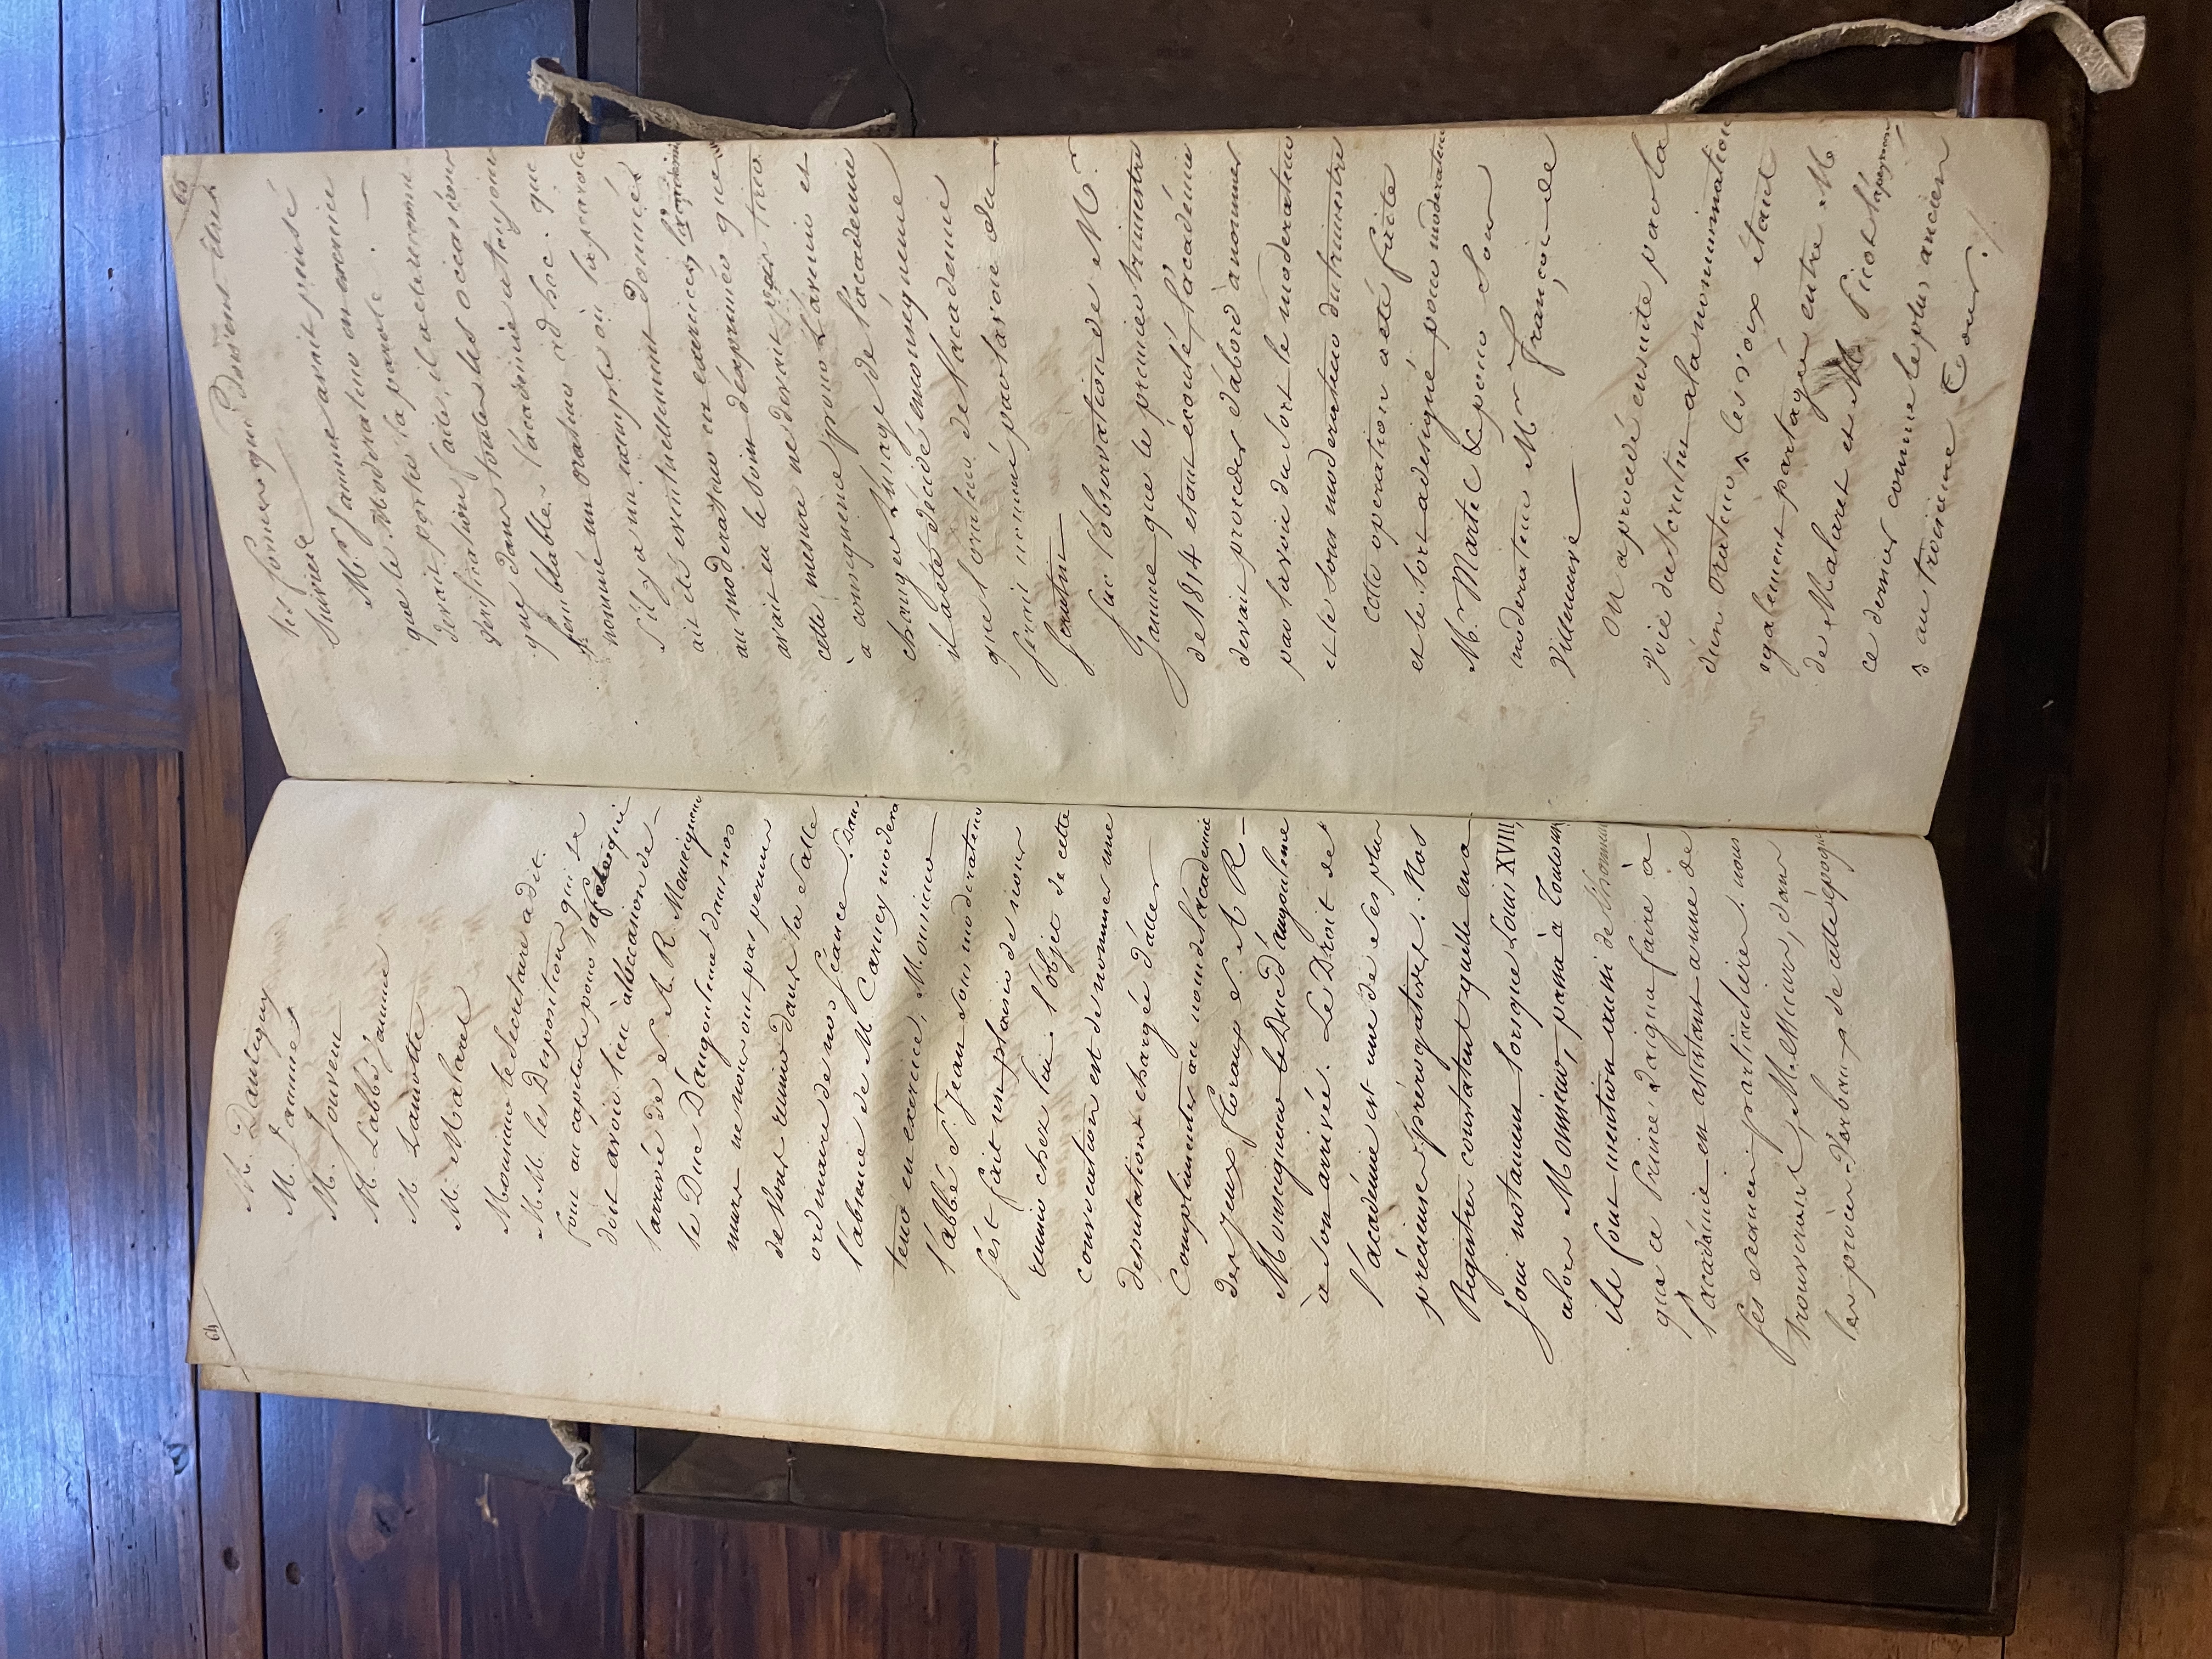 64
M. Dautiguy
M. Jamme
M. Jouvent
M. L'abbé Jamme
M. Lamotte
M. Malaret
Monsieur le Secretaire a dit.
M M. les Dispositions qui se
font au capitole pour la fete qui
doit avoir lieu à l'occasion de
l'arrivée de S. A. R. Monseigneur
le Duc D'angouleme dans nos
murs ne nous ont pas permis
de nous reunir dans la salle
ordinaire de nos séances. Dans
l'absence de M. Carney modera
teur en exercice, Monsieur
l'abbé St. jean sous moderateur
s'est fait un plaisir de nous
reunir chez lui. l'objet de cette
convocation est de nommer une
deputation chargée d'aller
Complimenter au nom de l'académie
des jeux floraux S. A R
Monseigneur le Duc d'angouleme
à son arrivée. Le Droit de
l'académie est une de ses plus
précieuses prérogatives. Nos
Registres constatent qu'elle en a
joui notament lorsque Louis XVIII,
alors Monsieur, passa à Toulouse
ils font mention aussi de l'honneur
que ce Prince daigna faire à
l'académie en assistant a une de
ses seances particulieres. nous
trouverons, M. Messieurs, dans
les procès verbaux de cette époque
65
les formes qui doivent être
suivies
M. Jamme avait pensé
que le Moderateur en exercice
devait porter la parole.
verification faite, il a eté reconnu
que dans toutes les occasions
semblables l'académie a toujours
nommé un orateur ad hoc. que
s'il y a un exemple où la parole
ait été eventuellement donnée
au moderateur en exercice, l'academie
avait eu le soin d'exprimer que
cette mesure ne devait pas tirer
à consequence pour l'avenir et
changer l'usage de l'académie
il a été décidé en conséquence
que l'orateur de l'academie
serait nommé par la voie du
scrutin
sur l'observation de M.
Jamme que le premier trimestre
de 1814 etant écoulé, l'accadémie
devait proceder d'abord à nommer
par la voie du sort le moderateur
et le sous moderateur du trimestre
cette operation a eté faite
et le sort a designé pour moderateur
M. Martel & pour sous
moderateur Mr. françois de
Villeneuve
On a procédé ensuite par la
voie du scrutin a la nommination
d'un Orateur ^ les voix étant
egalement partagées entre M
de Malaret et M. Picot Lapeyrouse
ce dernier comme le plus ancien
^ au troisieme Tour.